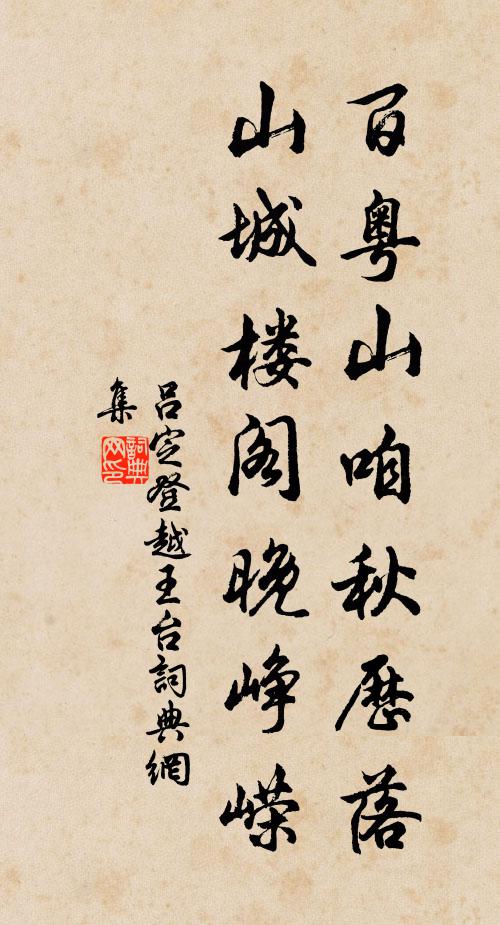 百粤山咱秋历落
山城楼阁晚峥嵘
吕定登越王台詞典網
集
詞典网印